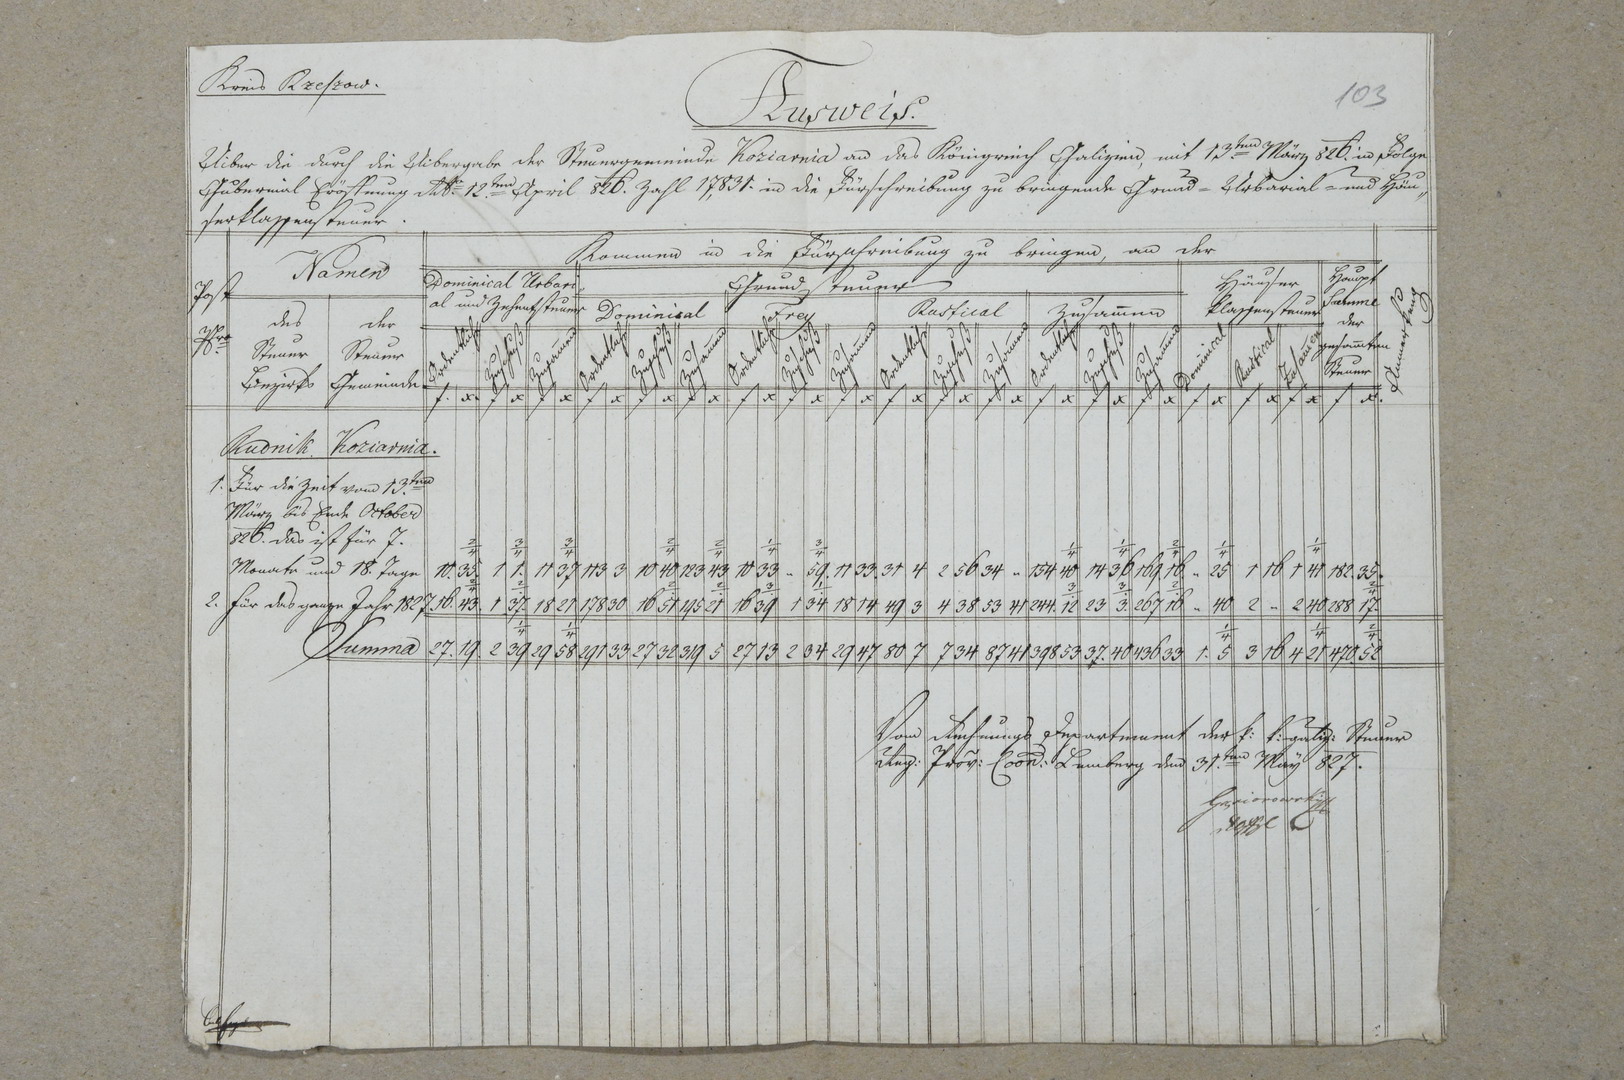 Kreis Rzeszow.
103
Ausweis.
Uiber die durch die Uibergabe der Steuergemeinde Koziarnia an das Königreich Galizien, mit 13ten März 826. in Folge
Gubernial Eröffnung 12ten April 826. Zahl 17,831. in die Fürschreibung zu bringende Grund- Urbarial- und Häu-
serklassensteuer.
Kommen in die Fürschreibung zu bringen, an der
Post
Nro
Namen
des Steuer Bezirks
der Steuer Gemeinde
Dominical Urbari-
al und Zehentsteuer
Grundsteuer
Häuser klassensteuer
Haupt Summe der gesammten Steuer
Anmerkung
Dominical
Frey
Rustical
Zusammen
Ordentliche Zuschuß Zusammen Ordentliche Zuschuß Zusammen Ordentliche Zuschuß Zusammen Ordentliche Zuschuß Zusammen Ordentliche Zuschuß Zusammen Dominical Rustical Zusammen
f. x. f x f x f x f x f x f x f x f x f x f x f x f x f x f x f x f x f x f x.
Rudnik. Koziarnia.
1. Für die Zeit vom 13ten
März bis Ende October
826. das ist für 7.
Monate und 18. Tage 10. 35 2/4 1 1 3/4 11 37 3/4 113 3 10 40 2/4 123 43 2/4 10 33 1/4 - 59 3/4 11 33 31 4 2 56 34 - 154 40 1/4 14 36 1/4 169 16 2/4 - 25 1/4 1 16 1 41 1/4 182 35
2. Für das ganze Jahr 1827 16. 43 2/4 1 37 2/4 18 21 178 30 16 51 2/4 195 21 2/4 16 39 3/4 1 34 1/4 18 14 49 3 4 38 53 41 244. 12 3/4 23 3 3/4 267 16 2/4 - 40 2 - 2 40 288 17 2/4
Summa 27. 19 2 39 1/4 29 58 1/4 291 33 27 32 319 5 27 13 2 34 29 47 80 7 7 34 87 41 398 53 37. 40 436 33 1. 5 1/4 3 16 4 21 1/4 470 52 2/4
Vom Rechnungs Departement der k: k: galiz: Steuer
Reg: Prov: Coon: Lemberg den 31ten May 827.